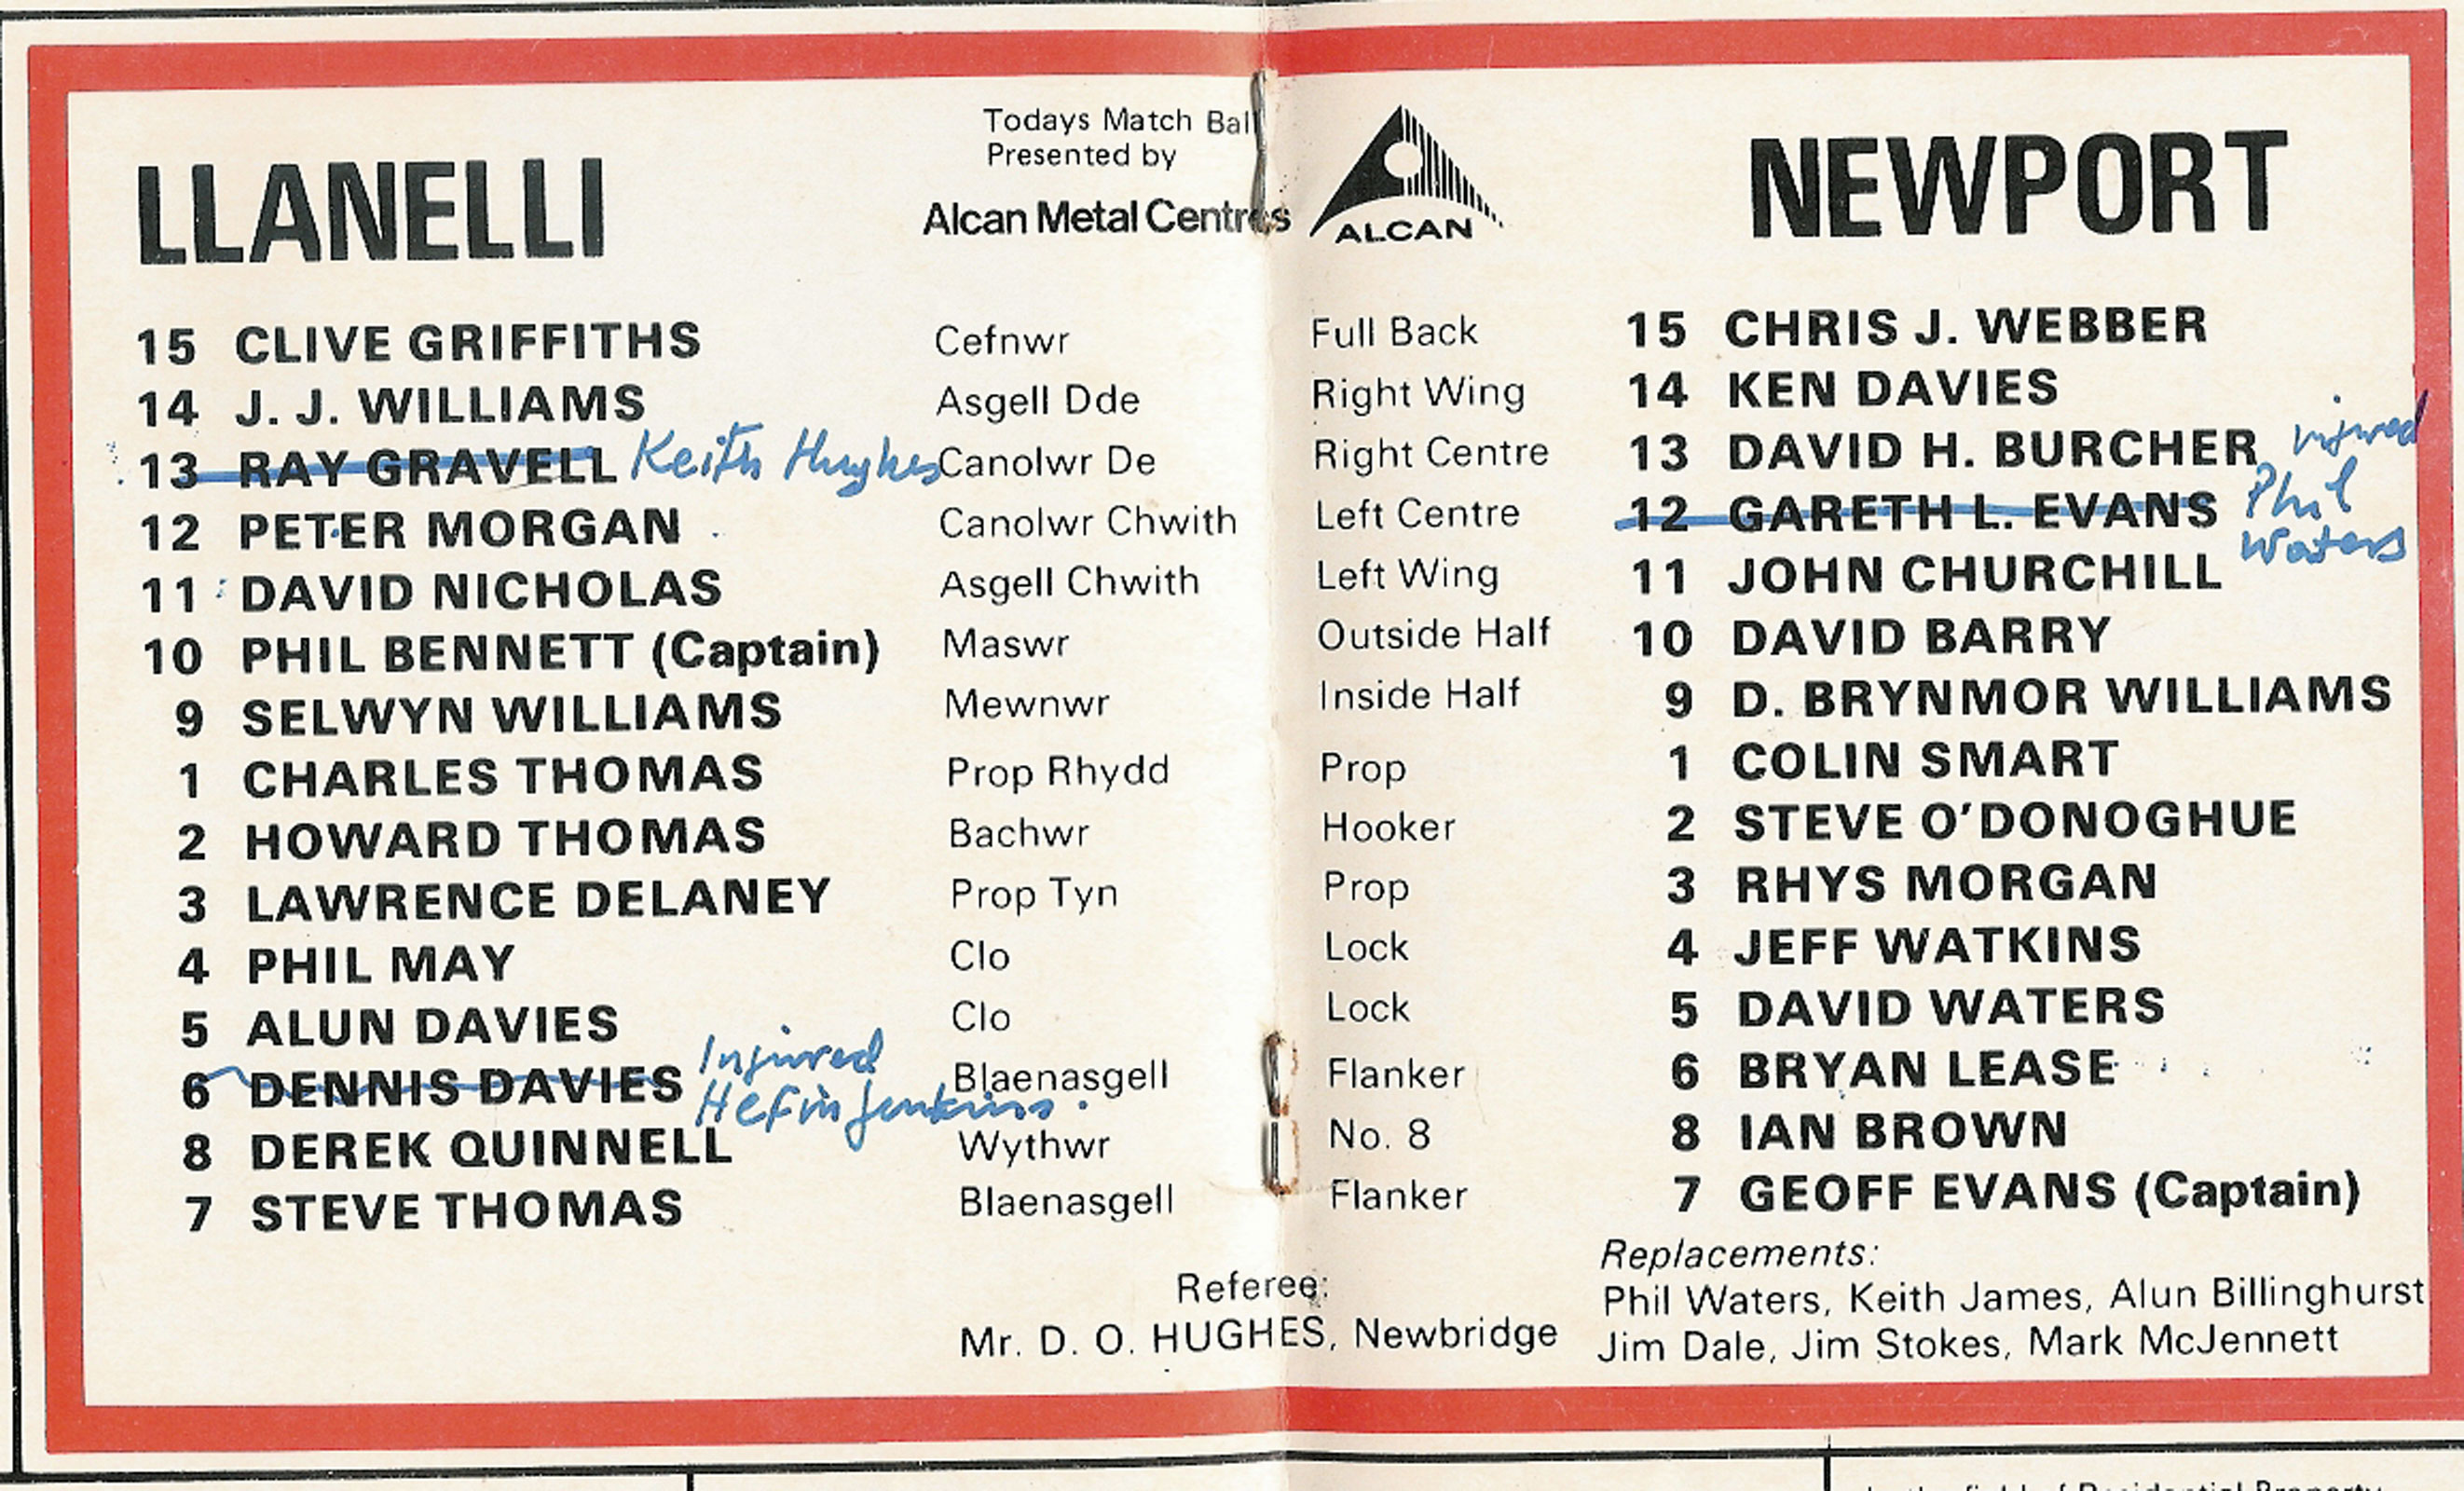 Todays Match Ball
Presented by
Alcan Metal Centres
ALCAN
LLANELLI
NEWPORT
15 CLIVE GRIFFITHS Cefnwr Full Back 15 CHRIS J. WEBBER
14 J. J. WILLIAMS Asgell Dde Right Wing 14 KEN DAVIES
13 RAY GRAVELL Keith Hughes Canolwr De Right Centre 13 DAVID H. BURCHER injured
12 PETER MORGAN Canolwr Chwith Left Centre 12 GARETH L. EVANS Phil Waters
11 DAVID NICHOLAS Asgell Chwith Left Wing 11 JOHN CHURCHILL
10 PHIL BENNETT (Captain) Maswr Outside Half 10 DAVID BARRY
9 SELWYN WILLIAMS Mewnwr Inside Half 9 D. BRYNMOR WILLIAMS
1 CHARLES THOMAS Prop Rhydd Prop 1 COLIN SMART
2 HOWARD THOMAS Bachwr Hooker 2 STEVE O'DONOGHUE
3 LAWRENCE DELANEY Prop Tyn Prop 3 RHYS MORGAN
4 PHIL MAY Clo Lock 4 JEFF WATKINS
5 ALUN DAVIES Clo Lock 5 DAVID WATERS
6 DENNIS DAVIES Injured Hefin Jenkins. Blaenasgell Flanker 6 BRYAN LEASE
8 DEREK QUINNELL Wythwr No. 8 8 IAN BROWN
7 STEVE THOMAS Blaenasgell Flanker 7 GEOFF EVANS (Captain)
Referee:
Mr. D. O. HUGHES, Newbridge
Replacements:
Phil Waters, Keith James, Alun Billinghurst
Jim Dale, Jim Stokes, Mark McJennett